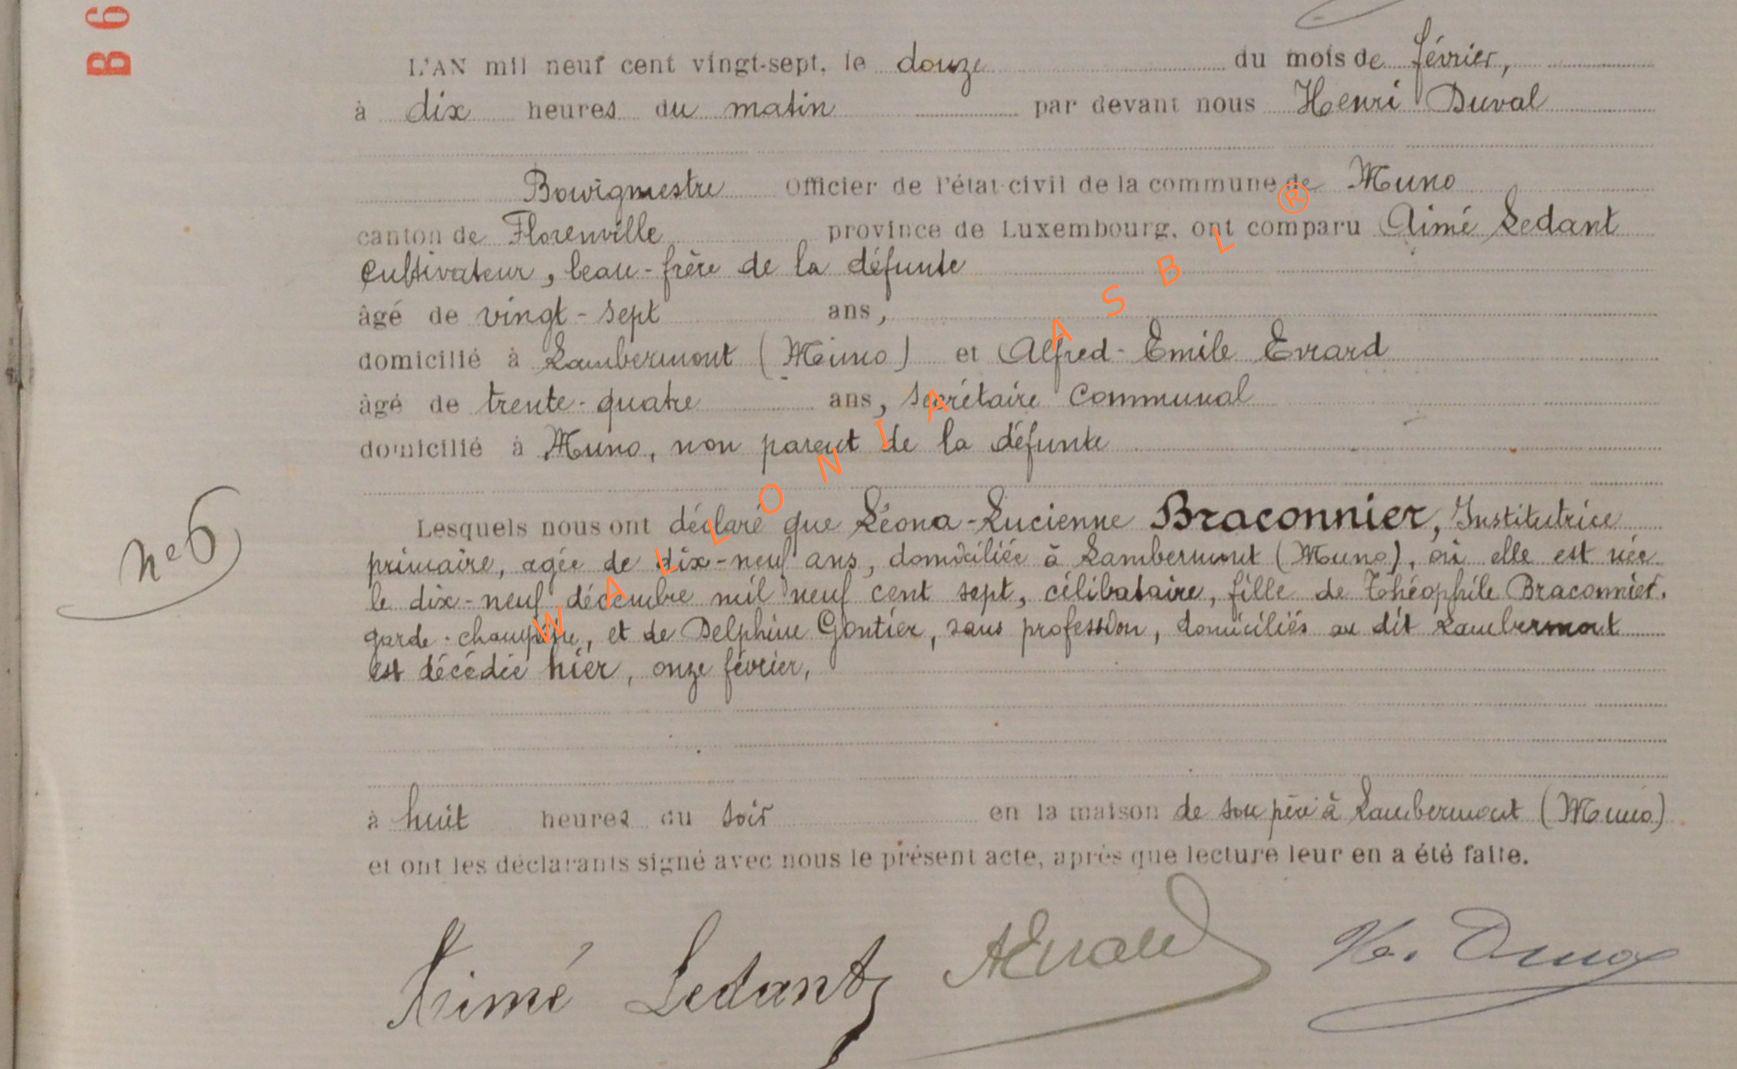 B6
L'AN mil neuf cent vingt-sept, le douze du mois de février,
à dix heures du matin par devant nous Henri Duval
Bourgmestre Officier de l'état civil de la commune de Muno
canton de Florenville province de Luxembourg, ont comparu Aimé Ledant
Cultivateur, beau-frère de la défunte
âgé de vingt-sept ans,
domicilié à Lambermont (Muno) et Alfred-Emile Evrard
âgé de trente-quatre ans, secrétaire communal
domicilié à Muno, non parent de la défunte
Lesquels nous ont déclaré que Léona-Lucienne Braconnier, Institutrice
primaire, agée de dix-neuf ans, domiciliée à Lambermont (Muno), où elle est née
le dix-neuf décembre mil neuf cent sept, célibataire, fille de Théophile Braconnier,
garde-champêtre, et de Delphine Gontier, sans profession, domiciliés au dit Lambermont
est décédée hier, onze février,
n° 6
à huit heures du soir en la maison de son père à Lambermont (Muno)
et ont les déclarants signé avec nous le présent acte, après que lecture leur en a été faite.
Aimé Ledant AEvrard H. Duval
WALLONIA ASBL ®